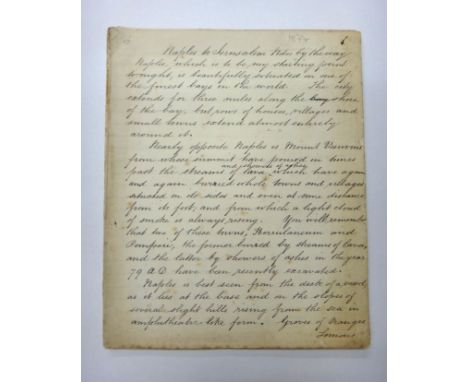 1874
Naples to Jerusalem Notes by the way
Naples, which is to be my starting point
to-night, is beautifully situated on one of
the finest bays in the world. The city
extends for three miles along the bay shore
of the bay, but rows of houses, villages and
small towns extend almost entirely
around it.
Nearly opposite Naples is Mount Vesuvius
from whose summit have poured in times
and showers of ashes
past the streams of lava which have again
and again buried whole towns and villages
situated on its sides and even at some distance
from its foot, and from which a light cloud
of smoke is always rising. You will remember
that two of these towns, Herculaneum and
Pompeii, the former buried by streams of lava,
and the latter by showers of ashes in the year
79 A.D. have been recently excavated.
Naples is best seen from the deck of a vessel,
as it lies at the base and on the slopes of
several slight hills rising from the sea in
amphitheatre like form. Groves of oranges
Lemons